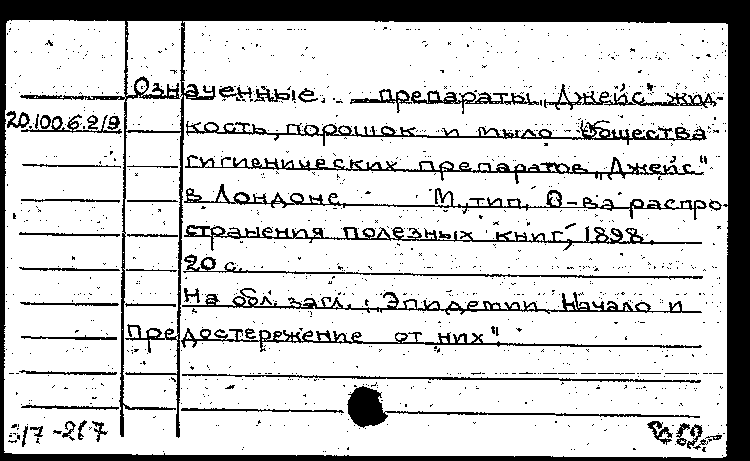 Означенные препараты „Джейс" жид-
20.100.6.219 кость, порошок и мыло Общества
гигиенических препаратов „Джейс"
в Лондоне. М., тип. О-ва распро-
странения полезных книг, 1898.
20 с.
На обл. загл.: „Эпидемии. Начало и
предостережение от них".